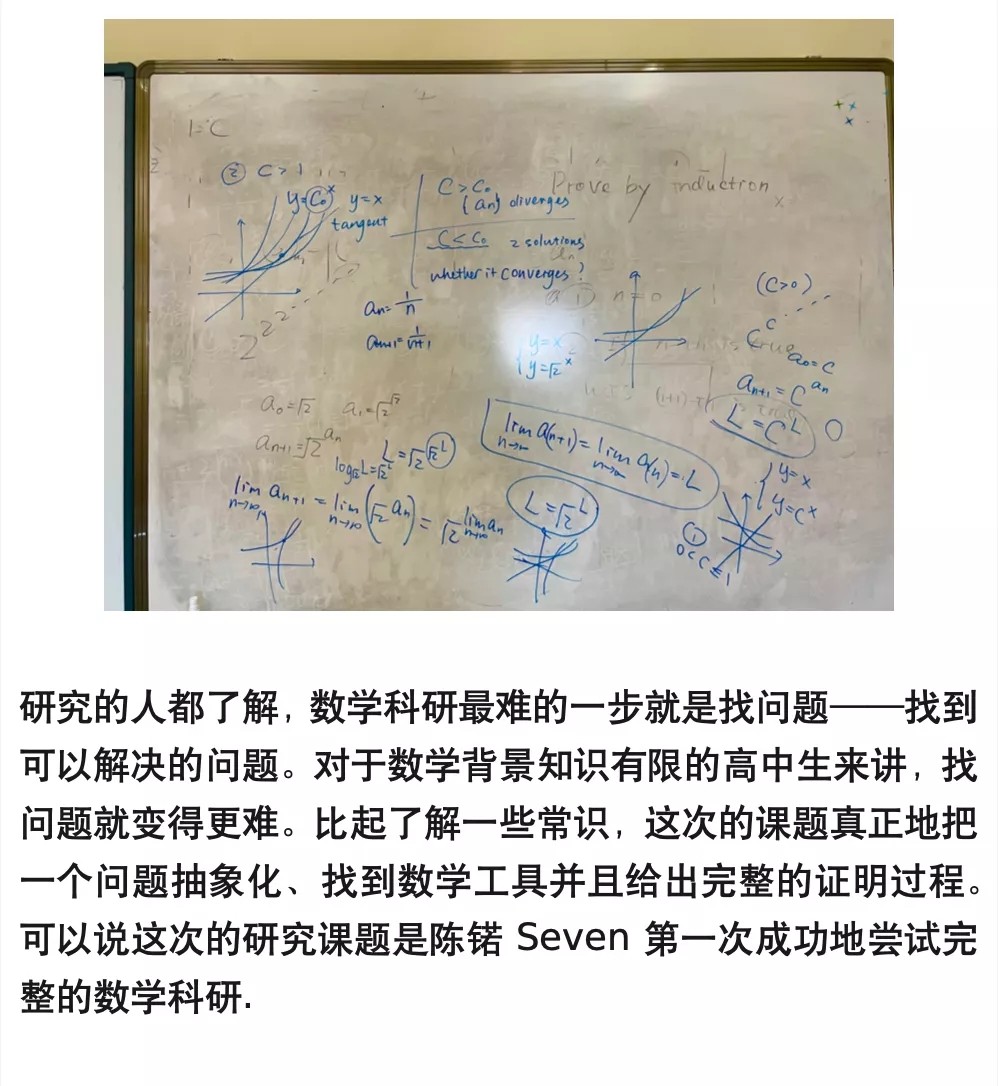 1=C
② C>1
y=C₀ˣ y=x
tangent
C>C₀
{an} diverges
C<C₀ 2 solutions
whether it converges?
Prove by induction
an=1/n
an+1=1/n+1
2^2^2
① n=0
{ y=x
y=√2ˣ
(C>0)
C^C
a₀=C
an+1=C^an
L=C^L
a₀=√2 a₁=√2^√2
an+1=√2^an
L=√2^√2^L
log√2 L=√2^L
lim n→∞ an+1 = lim n→∞ (√2^an) = √2^lim n→∞ an
lim n→∞ a(n+1) = lim n→∞ a(n) = L
L=√2^L
{ y=x
y=Cˣ
①
0<C≤1
研究的人都了解，数学科研最难的一步就是找问题——找到
可以解决的问题。对于数学背景知识有限的高中生来讲，找
问题就变得更难。比起了解一些常识，这次的课题真正地把
一个问题抽象化、找到数学工具并且给出完整的证明过程。
可以说这次的研究课题是陈锘 Seven 第一次成功地尝试完
整的数学科研.